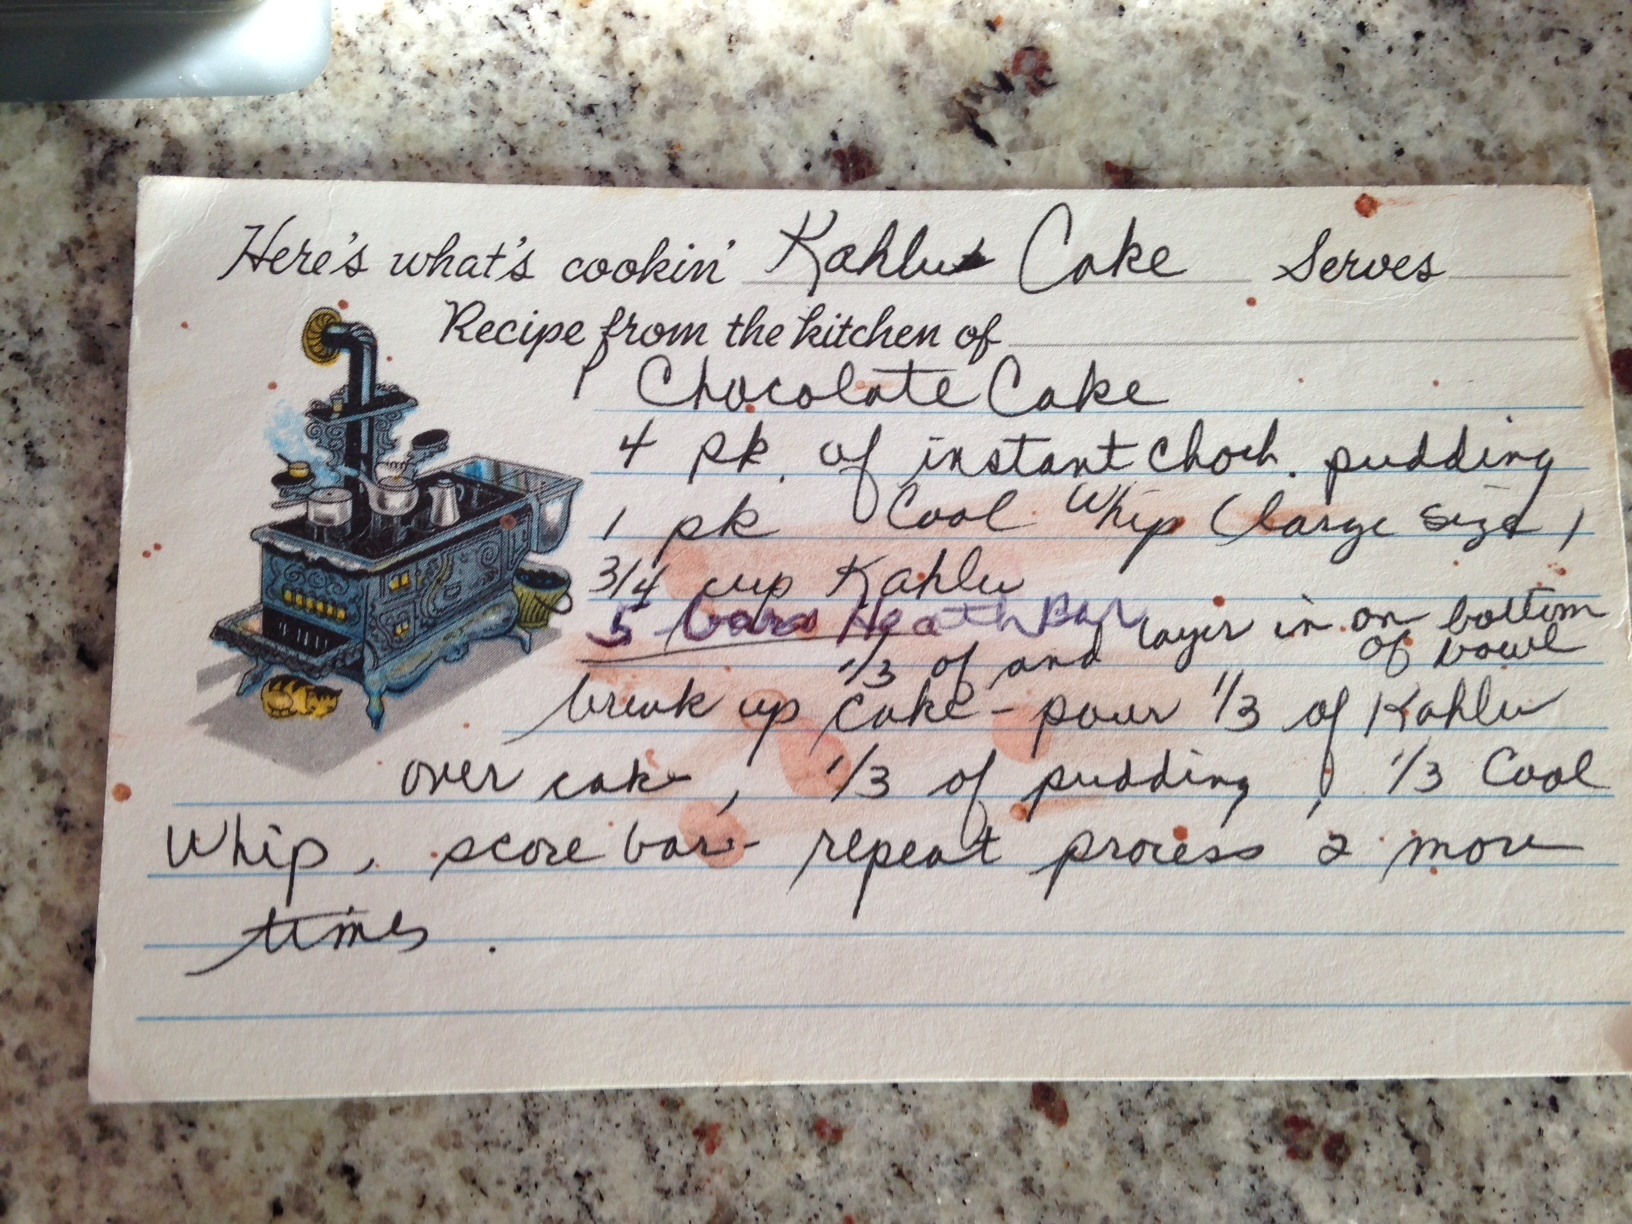 Here's what's cookin' Kahlua Cake Serves
Recipe from the kitchen of
1 Chocolate Cake
4 pk. of instant Choch. pudding
1 pk Cool Whip (large size)
3/4 cup Kahlu
5 bars Heath Bar
1/3 of and layer in on bottom
of bowl
break up cake - pour 1/3 of Kahlu
over cake, 1/3 of pudding, 1/3 Cool
Whip, score bar - repeat process 2 more
times.